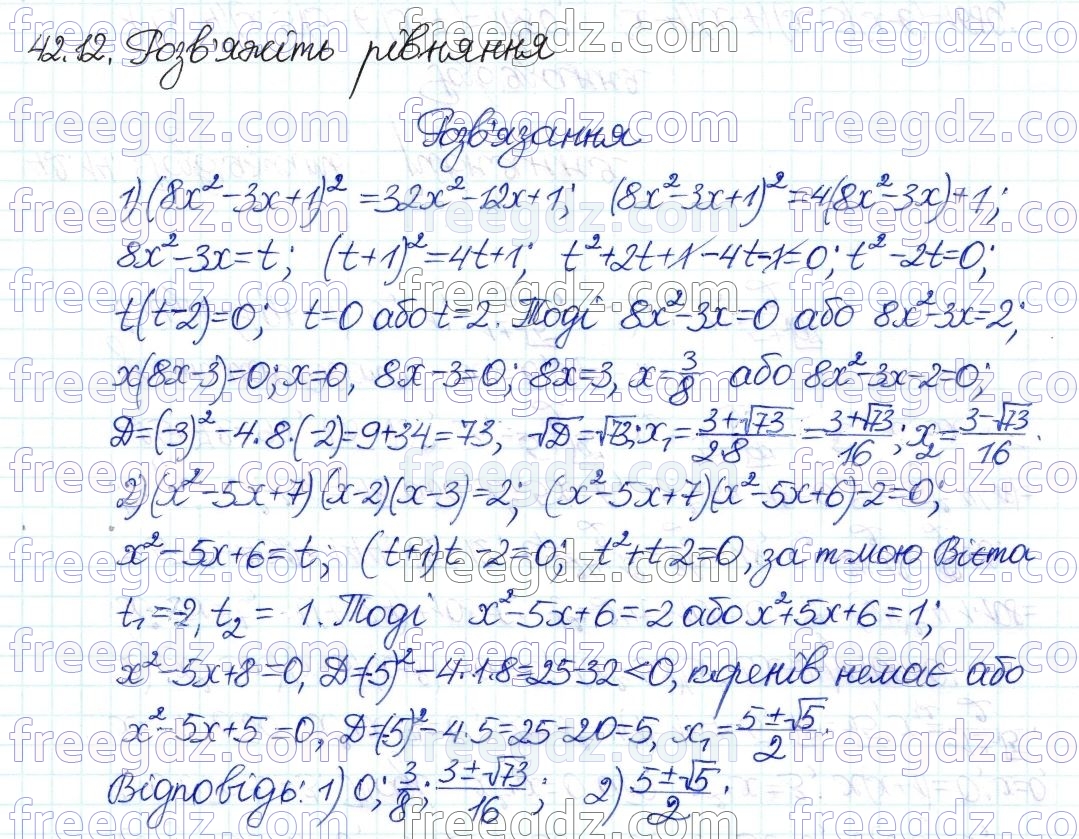 42.12. Розв'яжіть рівняння
Розв'язання
1) (8x²-3x+1)² =32x²-12x+1; (8x²-3x+1)²=4(8x²-3x)+1;
8x²-3x=t; (t+1)²=4t+1; t²+2t+1-4t-1=0; t²-2t=0;
t(t-2)=0; t=0 або t=2. Тоді 8x²-3x=0 або 8x²-3x=2;
x(8x-3)=0; x=0, 8x-3=0; 8x=3, x=3/8 або 8x²-3x-2=0;
D=(-3)²-4·8·(-2)=9+34=73, √D=√73; x₁=(3+√73)/(2·8)=(3+√73)/16; x₂=(3-√73)/16.
2) (x²-5x+7)(x-2)(x-3)=2; (x²-5x+7)(x²-5x+6)-2=0;
x²-5x+6=t; (t+1)t-2=0; t²+t-2=0, за т-мою Вієта
t₁=-2, t₂= 1. Тоді x²-5x+6=-2 або x²+5x+6=1;
x²-5x+8=0, D=(-5)²-4·1·8=25-32<0, коренів немає або
x²-5x+5=0, D=(-5)²-4·5=25-20=5, x₁=(5±√5)/2.
Відповідь: 1) 0; 3/8; (3±√73)/16; 2) (5±√5)/2.